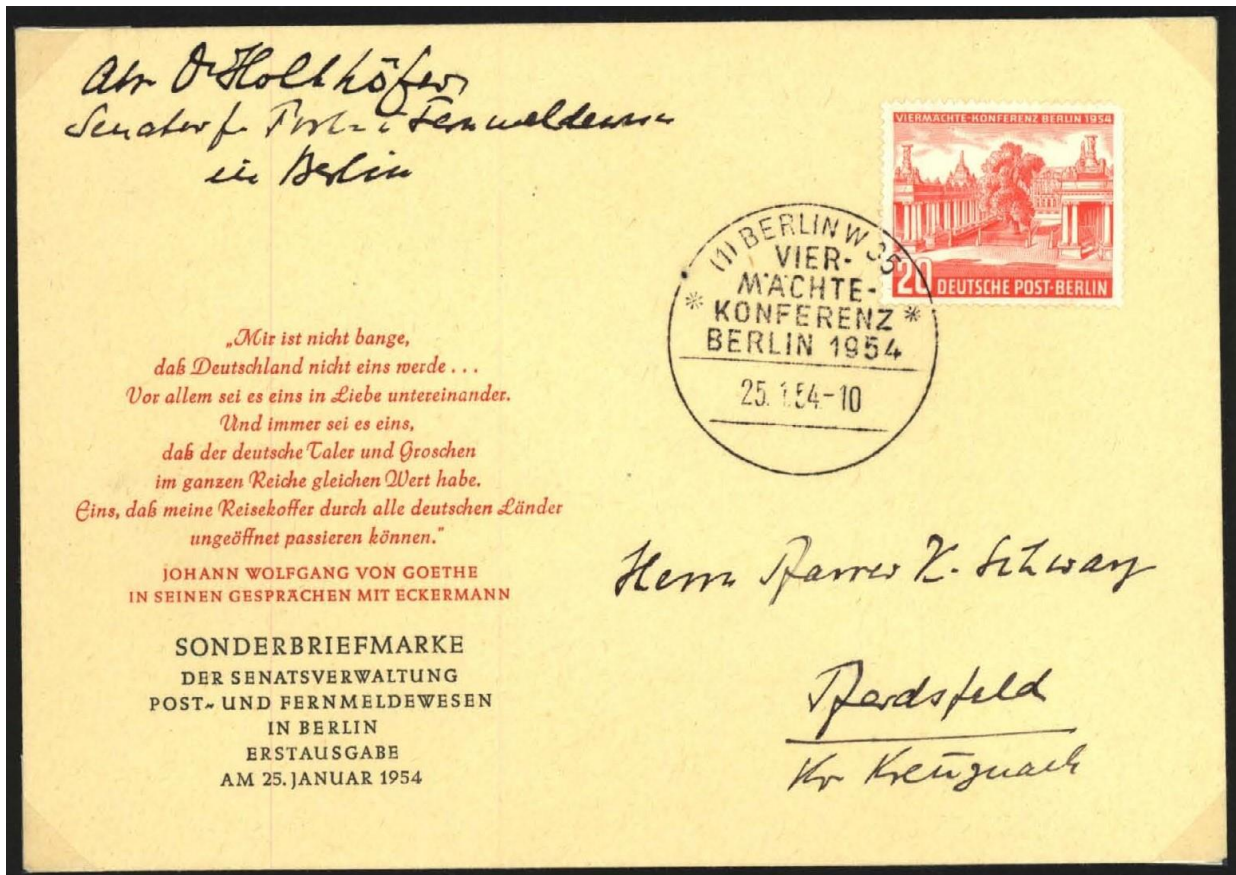 Abs Dr Holthöfer
Senator f. Post- u Fernmeldewesen
in Berlin
VIERMÄCHTE-KONFERENZ BERLIN 1954
20 DEUTSCHE POST·BERLIN
(1) BERLIN W 35
VIER-
MÄCHTE-
KONFERENZ
BERLIN 1954
25. 1.54.-10
„Mir ist nicht bange,
daß Deutschland nicht eins werde . . .
Vor allem sei es eins in Liebe untereinander.
Und immer sei es eins,
daß der deutsche Taler und Groschen
im ganzen Reiche gleichen Wert habe.
Eins, daß meine Reisekoffer durch alle deutschen Länder
ungeöffnet passieren können."
JOHANN WOLFGANG VON GOETHE
IN SEINEN GESPRÄCHEN MIT ECKERMANN
SONDERBRIEFMARKE
DER SENATSVERWALTUNG
POST- UND FERNMELDEWESEN
IN BERLIN
ERSTAUSGABE
AM 25. JANUAR 1954
Herrn Pfarrer K. Schwarz
Pferdsfeld
Kr Kreuznach